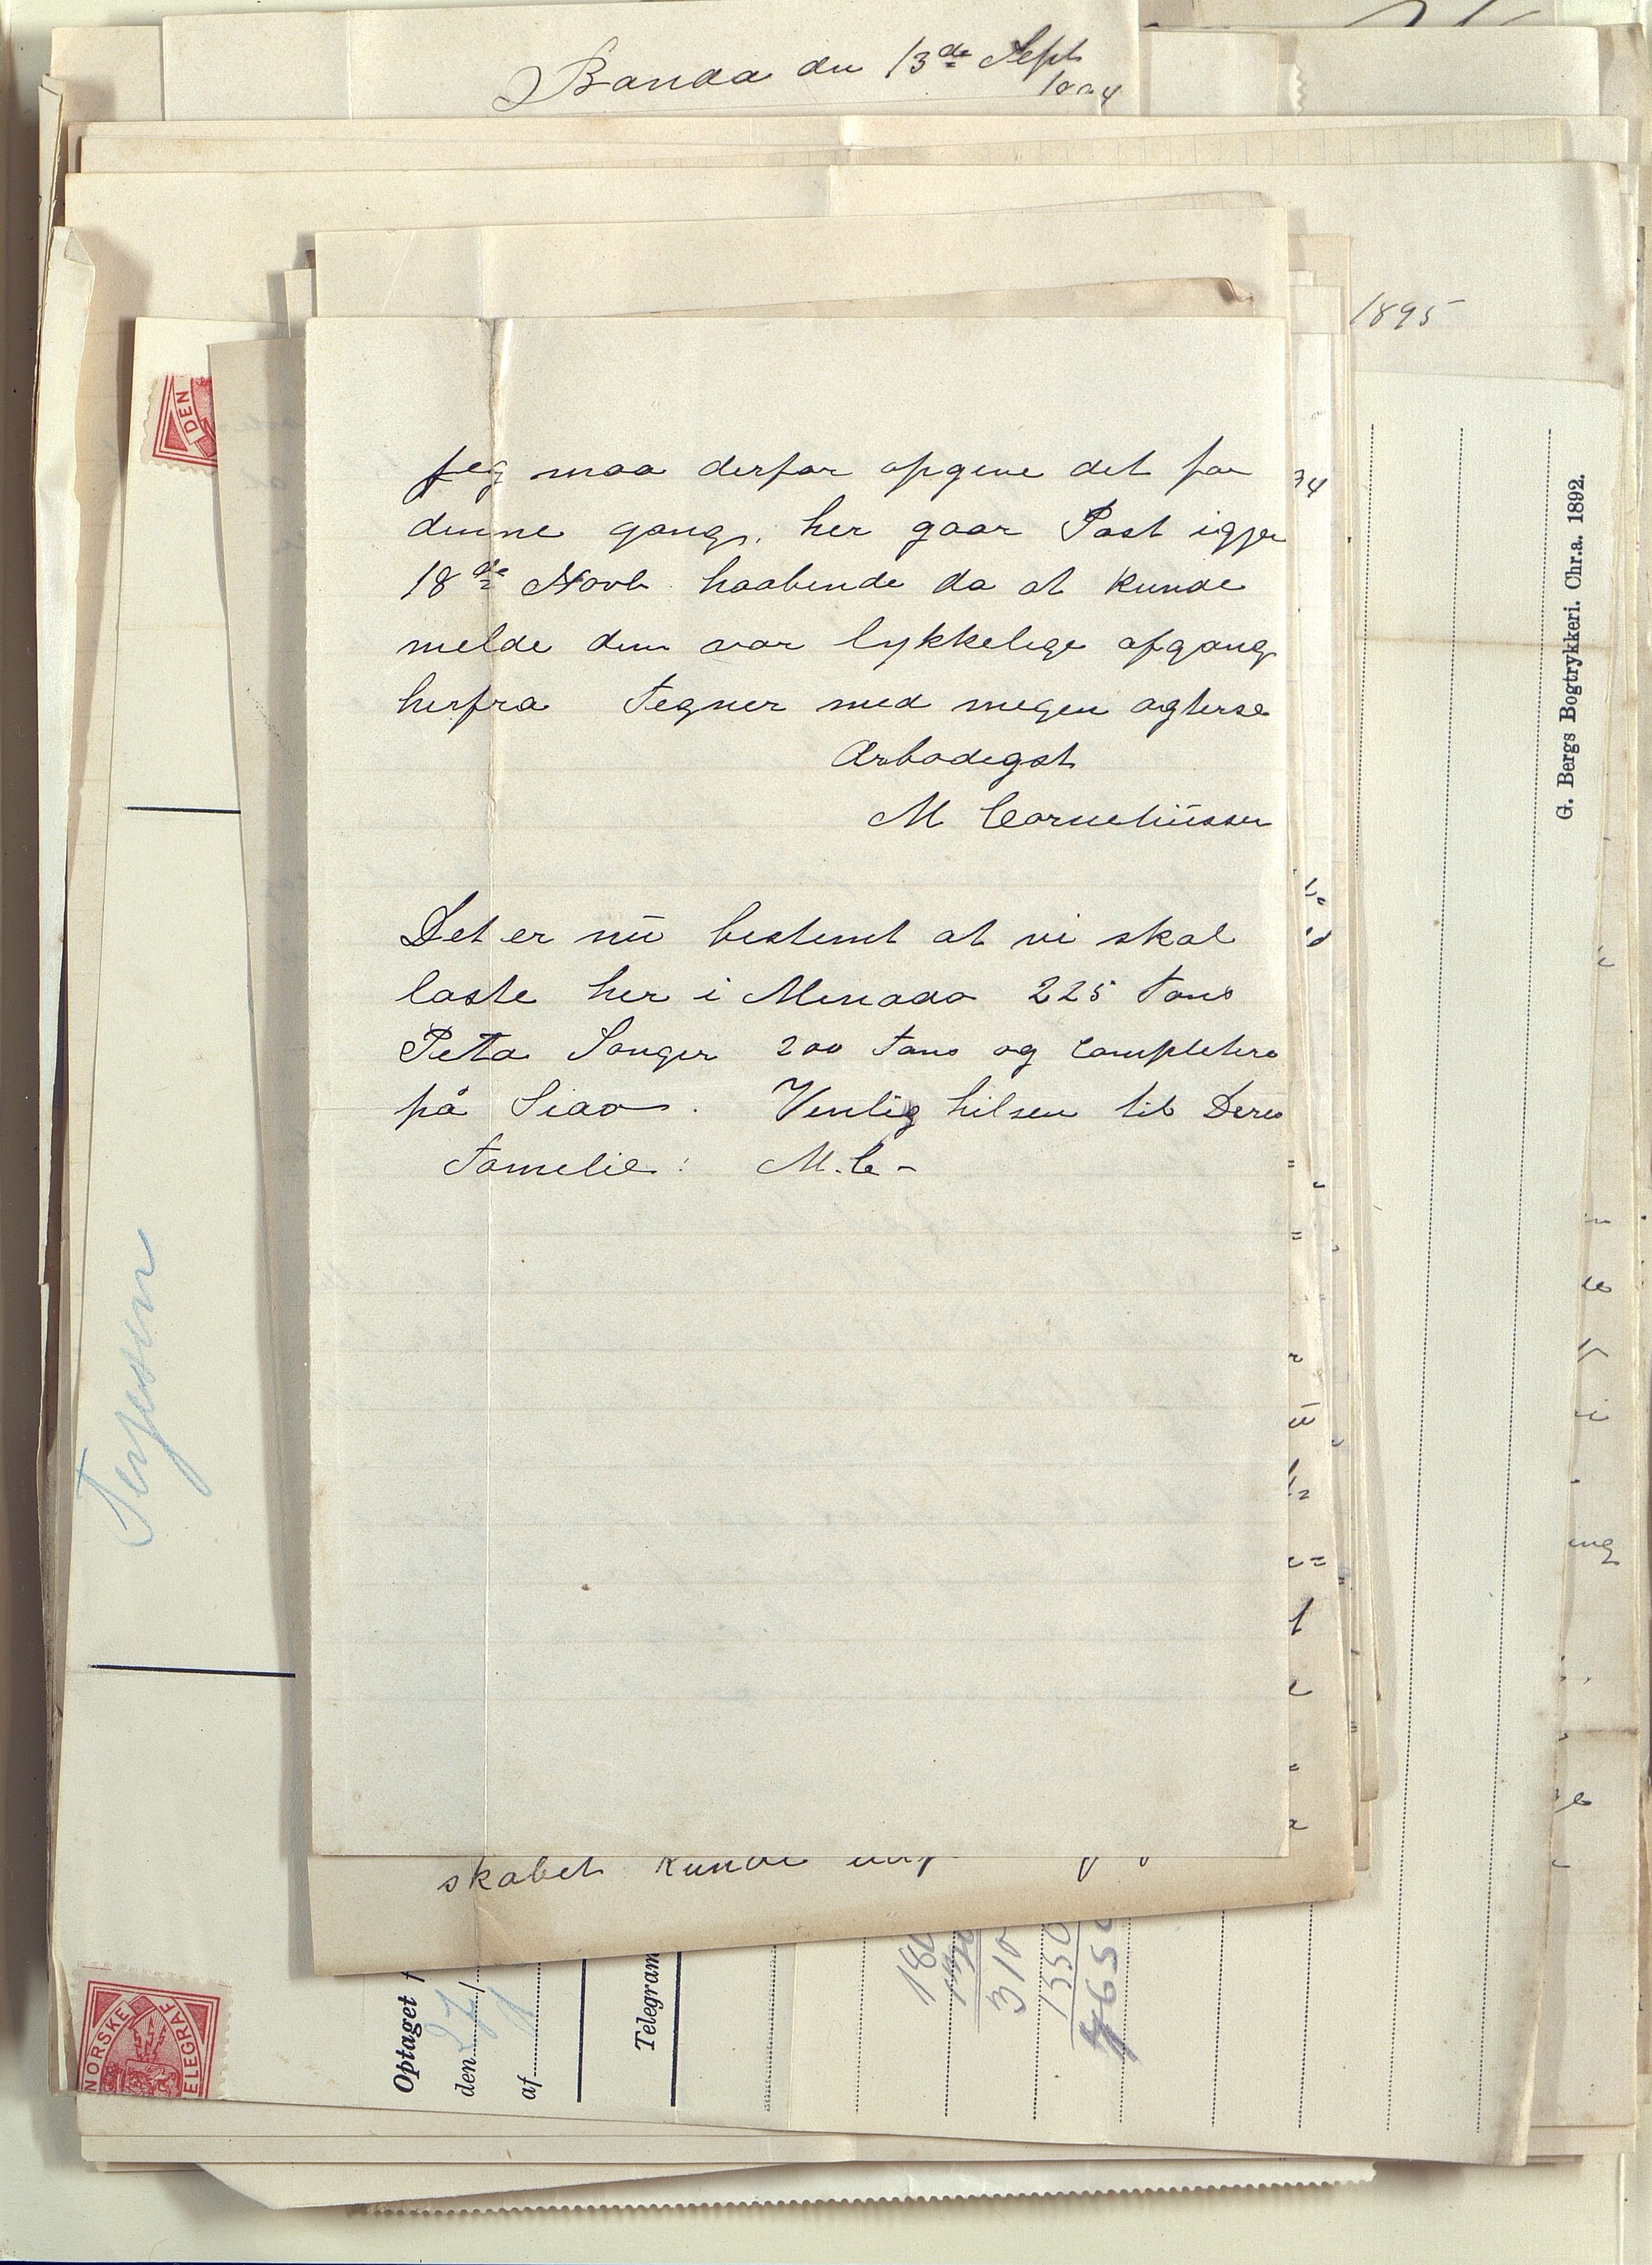 Banda den 13de Sept
1894
1895
Jeg maa derfor opgive det for
denne gang, her gaar Post igjen
18de Novb haabende da at kunde
melde dem vor lykkelige afgang
herfra Tegner med megen agterse
Ærbødigst
M Corneliüssen
Det er nü bestemt at vi skal
laste her i Menado 225 Tons
Peta Sanger 200 Tons og Complettere
på Siao. Venlig hilsen til Deres
Familie: M.C-
skabet kunde
G. Bergs Bogtrykkeri. Chr.a. 1892.
Terjesen
DEN
NORSKE
TELEGRAF
Optaget f
den 27/
af
Telegram
310